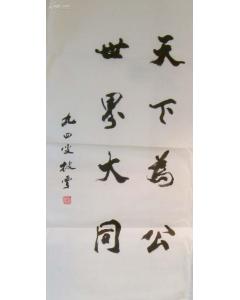 天下為公
世界大同
九四叟